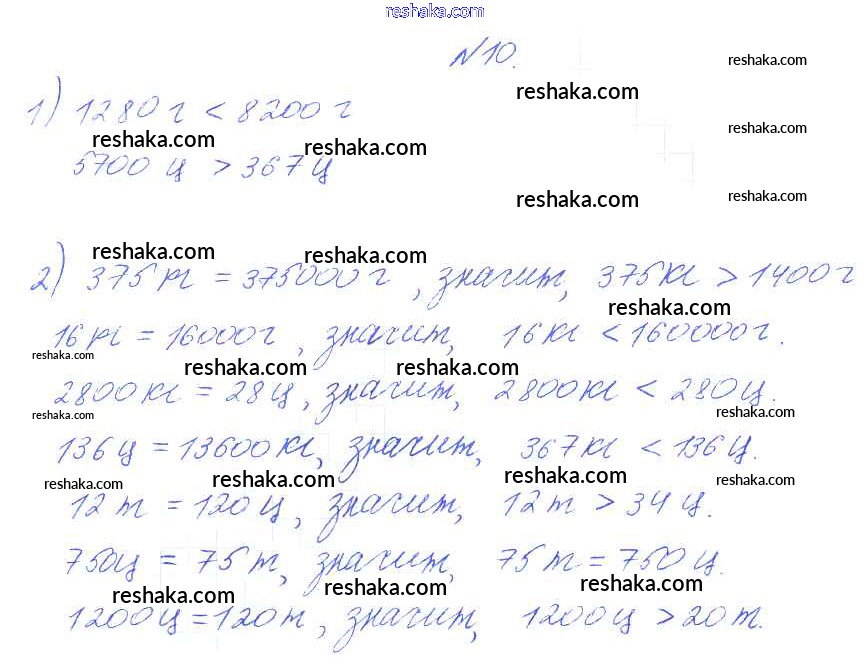 reshaka.com
№10.
reshaka.com
reshaka.com
1) 1280 г < 8200 г
reshaka.com
reshaka.com
reshaka.com
5700 ц > 367 ц
reshaka.com
reshaka.com
reshaka.com
reshaka.com
2) 375 кг = 375000 г, значит, 375 кг > 1400 г
reshaka.com
16 кг = 16000 г, значит, 16 кг < 160000 г.
reshaka.com
reshaka.com
reshaka.com
2800 кг = 28 ц, значит, 2800 кг < 280 ц.
reshaka.com
reshaka.com
136 ц = 13600 кг, значит, 367 кг < 136 ц.
reshaka.com
reshaka.com
reshaka.com
reshaka.com
12 т = 120 ц, значит, 12 т > 34 ц.
750 ц = 75 т, значит, 75 т = 750 ц.
reshaka.com
reshaka.com
reshaka.com
1200 ц = 120 т, значит, 1200 ц > 20 т.